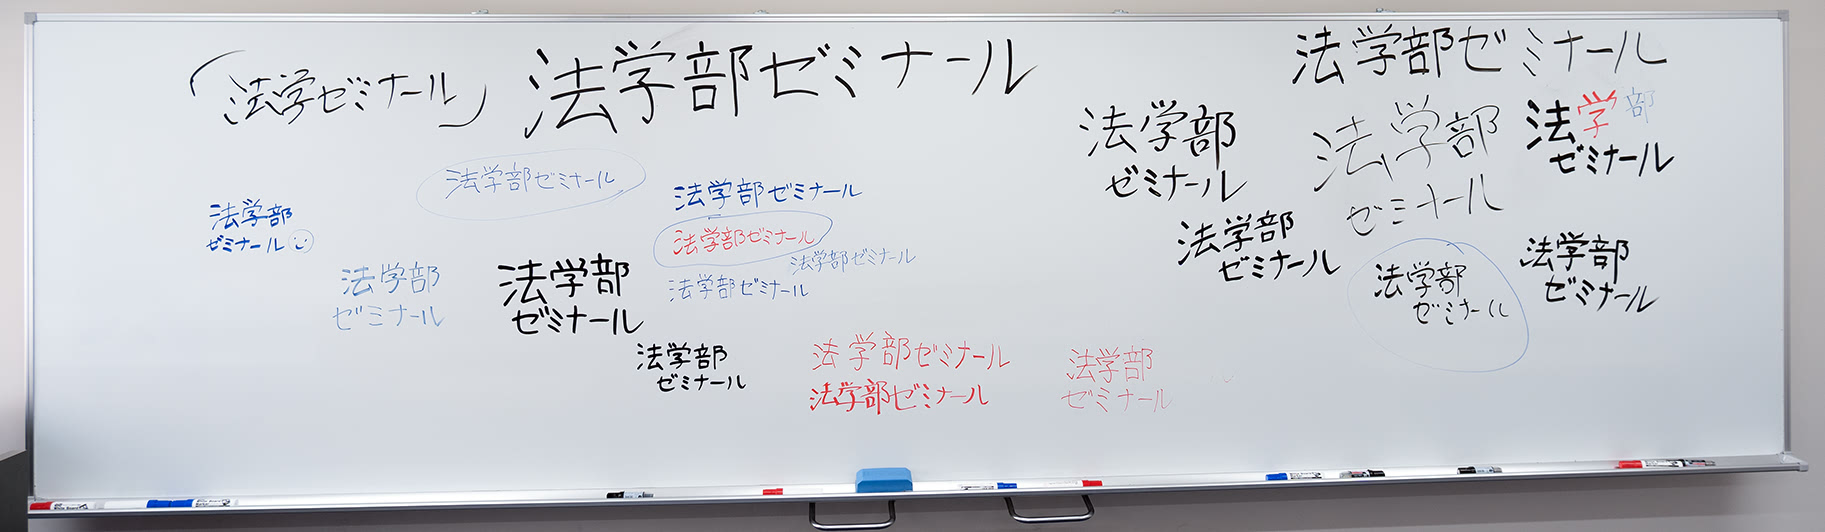 (法学ゼミナール)
法学部ゼミナール
法学部ゼミナール
法学部
ゼミナール
法学部
ゼミナール
法学部
ゼミナール
法学部ゼミナール
法学部ゼミナール
法学部
ゼミナール
法学部ゼミナール
法学部ゼミナール
法学部ゼミナール
法学部
ゼミナール
法学部
ゼミナール
法学部
ゼミナール
法学部
ゼミナール
法学部
ゼミナール
法学部
ゼミナール
法学部
ゼミナール
法学部ゼミナール
法学部ゼミナール
法学部
ゼミナール